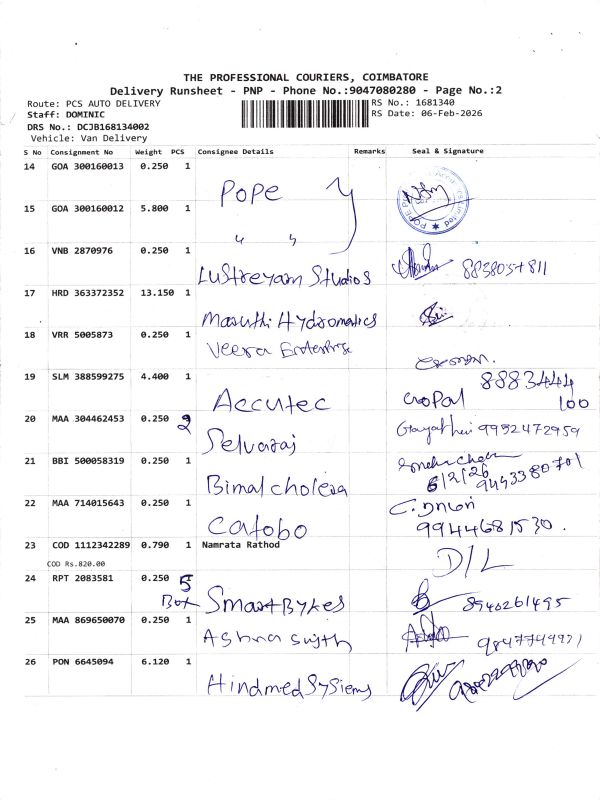 THE PROFESSIONAL COURIERS, COIMBATORE
Delivery Runsheet - PNP - Phone No.:9047080280 - Page No.:2
Route: PCS AUTO DELIVERY
RS No.: 1681340
Staff: DOMINIC
RS Date: 06-Feb-2026
DRS No.: DCJB168134002
Vehicle: Van Delivery
S No Consignment No Weight PCS Consignee Details Remarks Seal & Signature
14 GOA 300160013 0.250 1 Pope
15 GOA 300160012 5.800 1 " "
16 VNB 2870976 0.250 1 Lustreyam Studios
17 HRD 363372352 13.150 1 Maruthi Hydromatics
18 VRR 5005873 0.250 1 Veera Enterprise
19 SLM 388599275 4.400 1 Accutec 8883444
100
20 MAA 304462453 0.250 2 Selvaraj Gayathri 9952472959
21 BBI 500058319 0.250 1 Bimal cholera
6/2/26 9443380701
22 MAA 714015643 0.250 1 Catobo
9944681530.
23 COD 1112342289 0.790 1 Namrata Rathod D/L
COD Rs.820.00
24 RPT 2083581 0.250 5 Box SmartBykes 8940261495
25 MAA 869650070 0.250 1 Ashna sujith
26 PON 6645094 6.120 1 Hindmed Systems